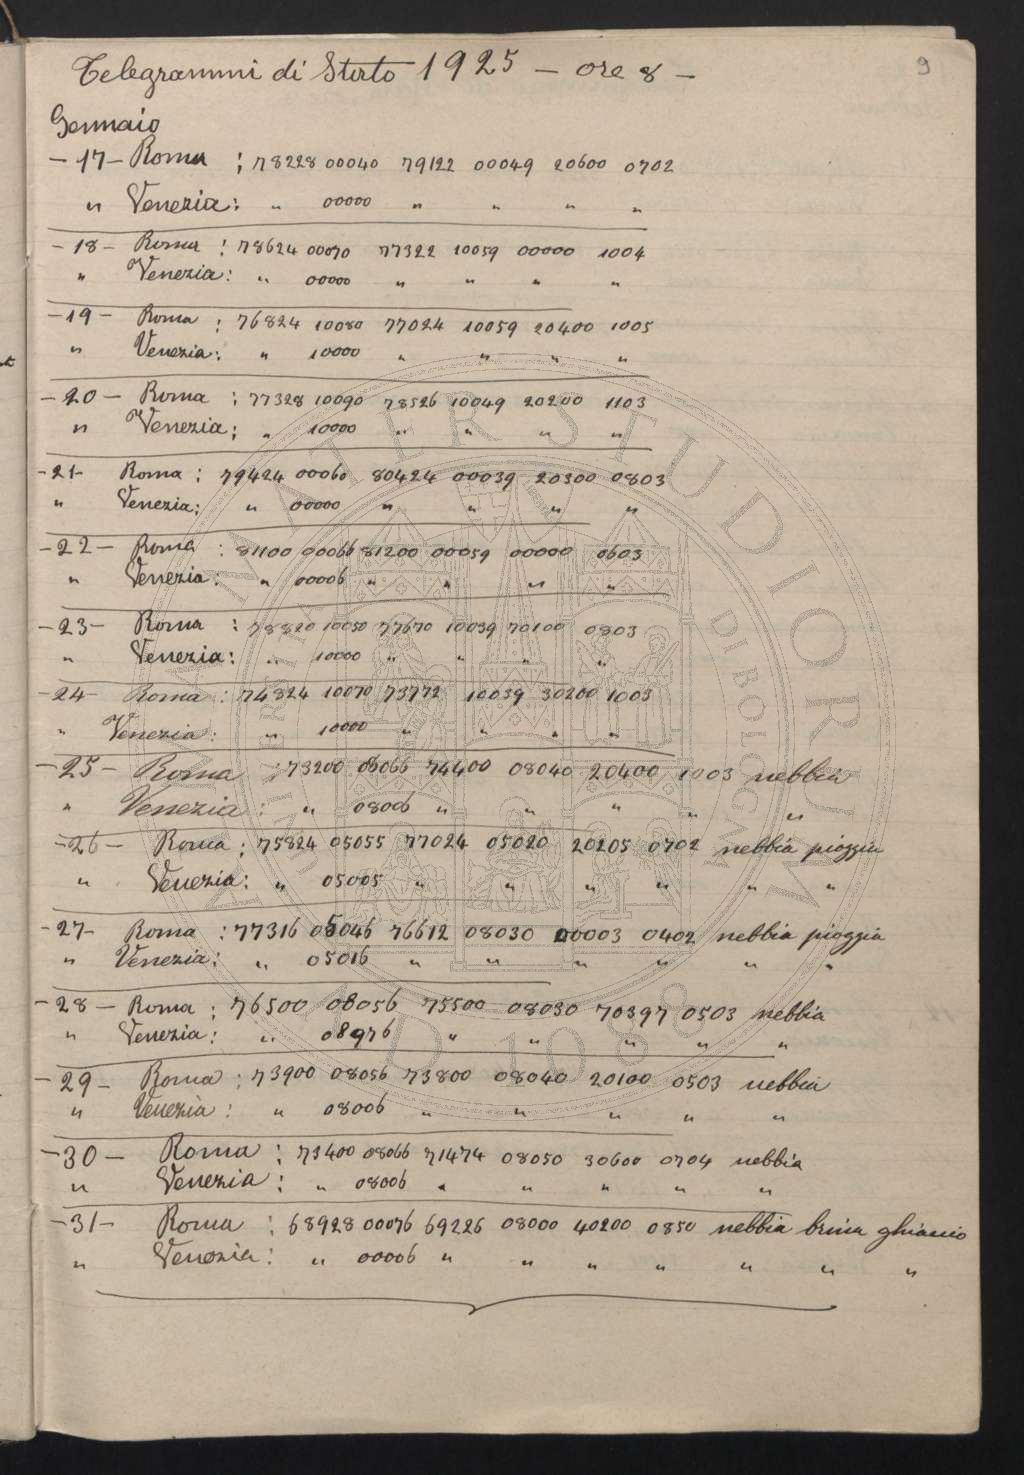 9
Telegrammi di Sterto 1925 — ore 8 —
Gennaio
— 17 — Roma : 78228 00040 79122 00049 20600 0702
" Venezia : " 00000 " " " "
— 18 — Roma : 78624 00070 77322 10059 00000 1004
" Venezia : " 00000 " " " "
— 19 — Roma : 76824 10080 77024 10059 20400 1005
" Venezia : " 10000 " " " "
— 20 — Roma : 77328 10090 78526 10049 20200 1103
" Venezia ; " 10000 " " " "
— 21 — Roma : 79424 00060 80424 00039 20300 0803
" Venezia ; " 00000 " " " "
— 22 — Roma : 81100 00066 81200 00059 00000 0603
" Venezia : " 00006 " " " "
— 23 — Roma : 78820 10050 77670 10039 70100 0803
" Venezia : " 10000 " " " "
— 24 — Roma : 74824 10070 73772 10039 30200 1003
" Venezia : " 10000 " " " "
— 25 — Roma : 73200 08066 74400 08040 20400 1003 nebbia
" Venezia : " 08006 " " " " "
— 26 — Roma ; 75824 05055 77024 05020 20205 0702 nebbia pioggia
" Venezia : " 05005 " " " " " "
— 27 — Roma : 77316 05046 76612 08030 00003 0402 nebbia pioggia
" Venezia : " 05016 " " " " " "
— 28 — Roma ; 76500 08056 75500 08030 70397 0503 nebbia
" Venezia : " 08976 " " " " "
— 29 — Roma ; 73900 08056 73800 08040 20100 0503 nebbia
" Venezia : " 08006 " " " " "
— 30 — Roma : 73400 08066 71474 08050 30600 0704 nebbia
" Venezia : " 08006 " " " " "
— 31 — Roma : 68928 00076 69226 08000 40200 0850 nebbia brina ghiaccio
" Venezia : " 00006 " " " " " " "
ALMA MATER STUDIORUM
A.D. 1088